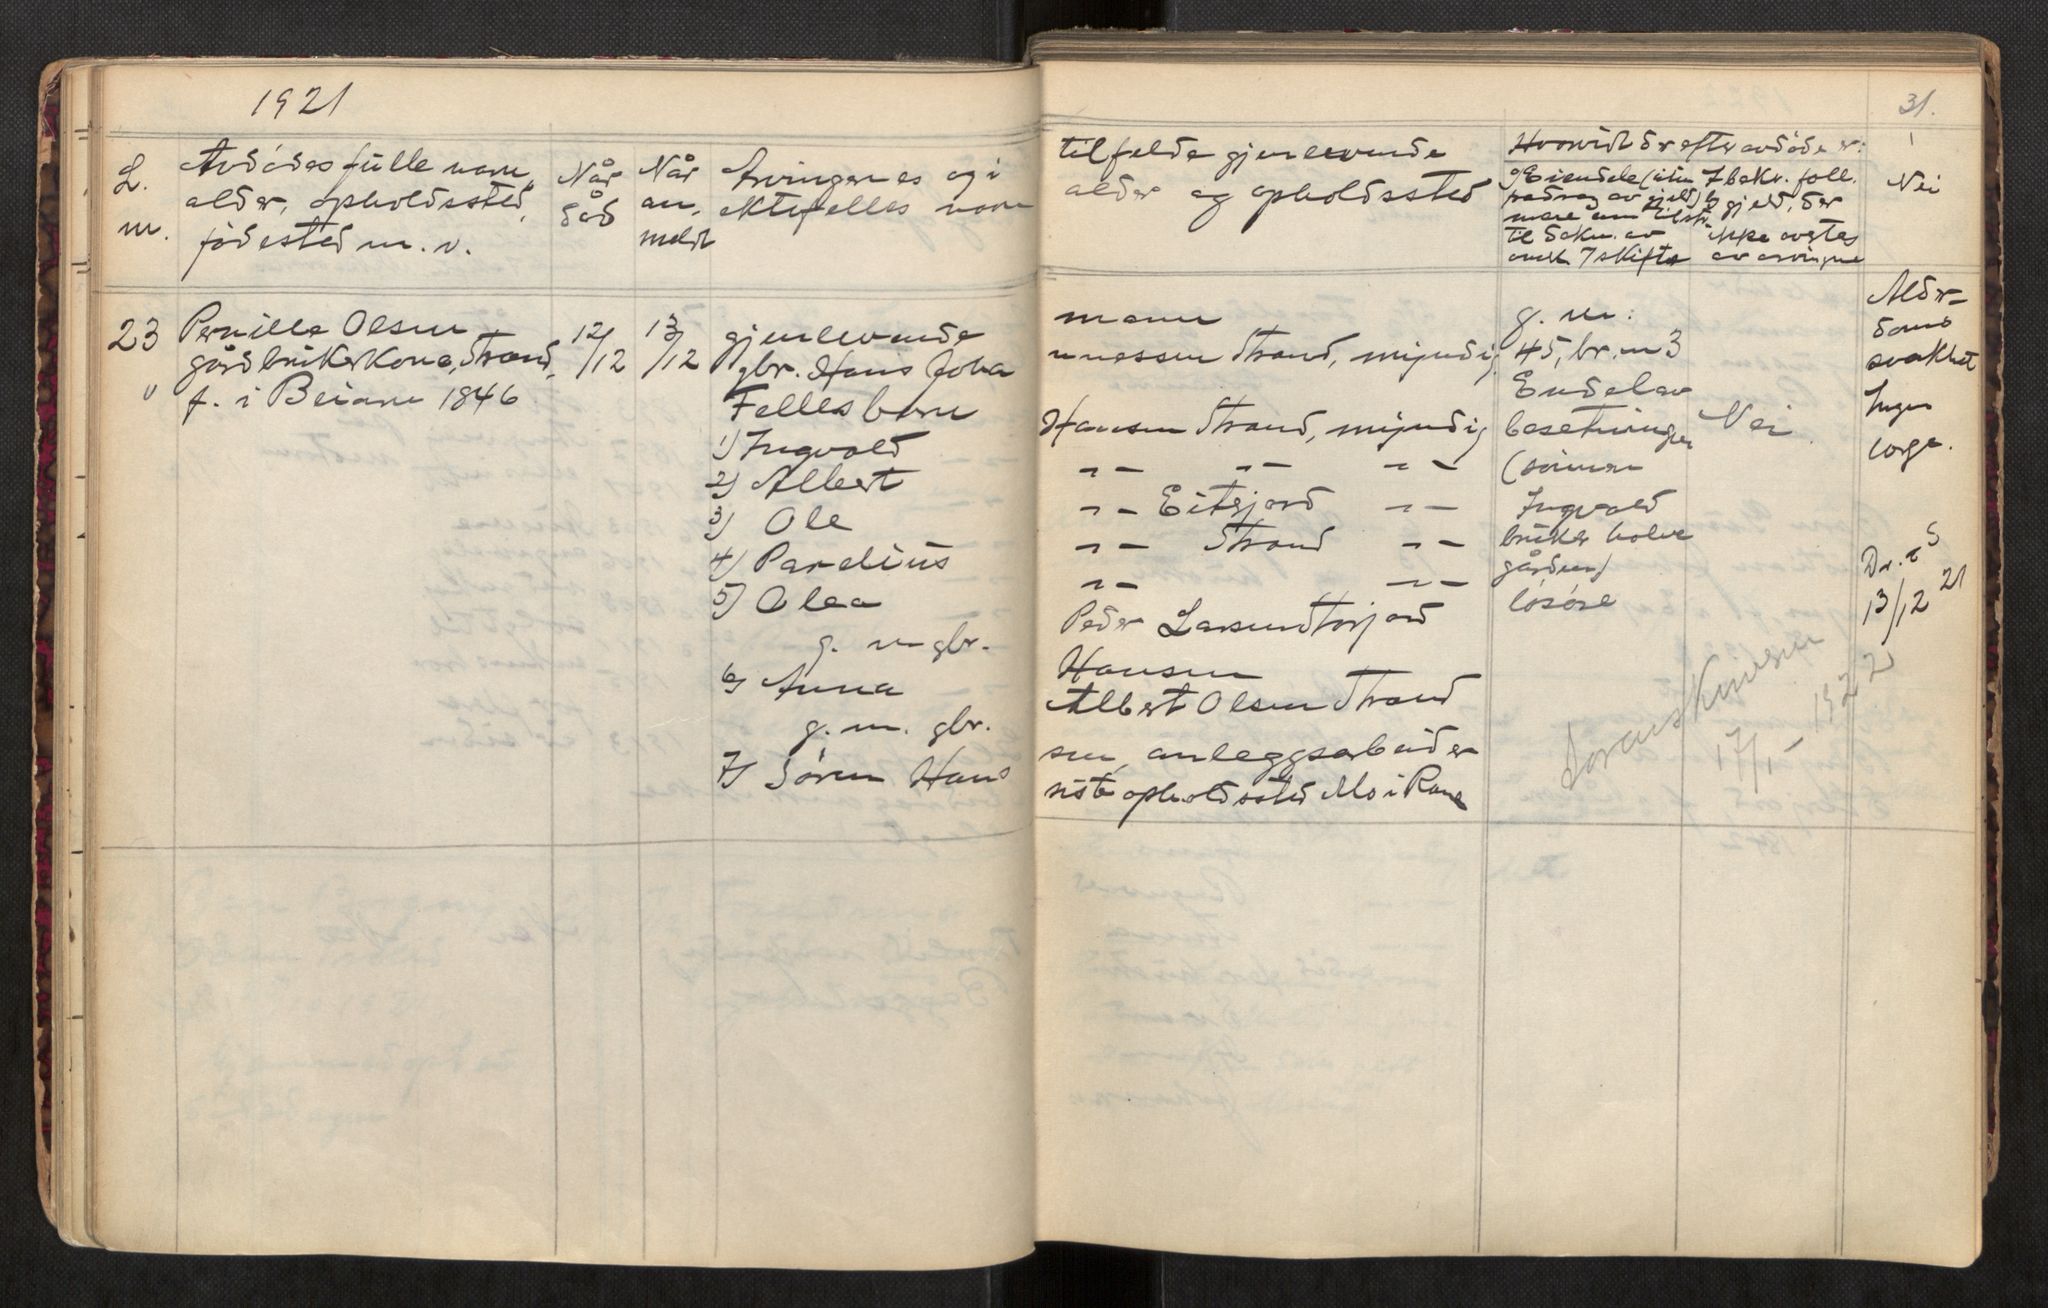 1921
L.
m.
Avdødes fulle navn,
alder, opholdssted,
fødested m. v.
Når
død
Når
an.
meldt
Arvingenes og i
ektefelles navn
23
Pernille Olsen
gårdbrukerkone, Strand,
f. i Beiarn 1846
12/12
13/12
gjenlevende
gbr. Hans Joha
Fellesbarn
1) Ingvald
2) Albert
3) Ole
4) Parelius
5) Olea
g. m gbr.
6) Anna
g. m. gbr.
7) Søren Hans
31.
tilfelde gjenlevende
alder og opholdssted
Hvorvidt der efter avdøde er:
Eiendele
7 bekv. foll.
gjeld, der
ikke
av arvingene
Nei
mann
nnessen Strand, myndig
Hansen Strand, myndig
-"- -"- -"-
-"- Eitefjord -"-
-"- Strand -"-
-"- -"-
Peder Larsen Storjord
Hansen
Albert Olsen Strand
sen, anleggsarbeider
siste opholdssted Mo i Rana
g. nr:
45, br. nr 3
Endel av
besetningen
(sønnen
Ingvald
bruker halve
gården)
løsøre
Nei
Alder-
doms
svakhet
Ingen
sorge.
Dr. a S
13/12 21
17/1 - 1922